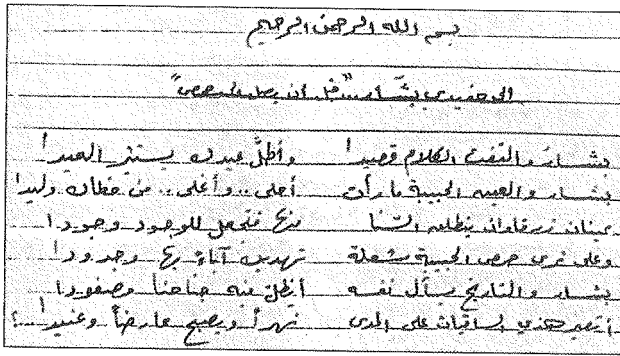 بسم الله الرحمن الرحيم
الى حفيدي بشّار "قبل ان يصل حمص"
بشار والتفت الكلام قصيدا وأطلّ عيدك يستثير العيدا
بشار والعيد الحبيبة ما رأت أحلى.. وأغلى.. من خطاك وليدا
عينان زرقاوان يطلع السنا منها فتجعل للوجود وجودا
وعلى حمص الحبيبة شعلة تهديك آباء بها وجدودا
بشار والتاريخ يسأل نفسه أيظل منه جناحنا مصفودا
أتصير هذي الساقيات على المدى نهراً ويصبح عارضاً وعنيدا..؟